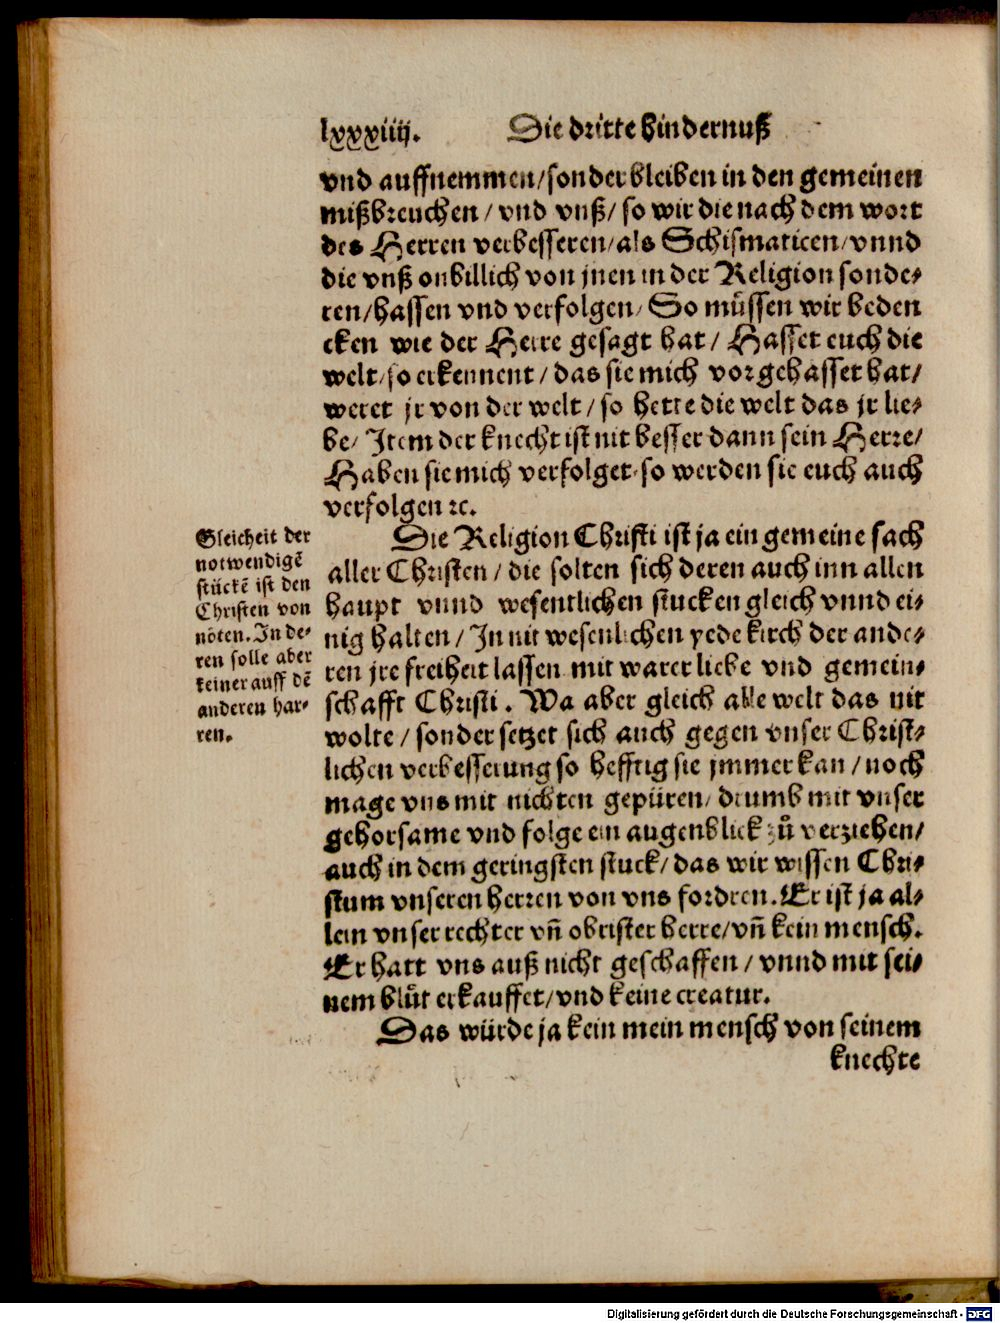 lxxxiiij. Die dritte hindernuß
vnd auffnemmen/sonder bleiben in den gemeinen
mißbreuchen/ vnd vnß/ so wir die nach dem wort
des Herren verbesseren/als Schismaticen/vnnd
die vnß onbillich von jnen in der Religion sonde⸗
ren/hassen vnd verfolgen/ So müssen wir beden
cken wie der Herre gesagt hat/ Hasset euch die
welt/so erkennent/ das sie mich vor gehasset hat/
weret jr von der welt/ so hette die welt das jr lie⸗
be/ Item der knecht ist nit besser dann sein Herre/
Haben sie mich verfolget/so werden sie euch auch
verfolgen ꝛc.
Die Religion Christi ist ja ein gemeine sach
aller Christen/ die solten sich deren auch inn allen
haupt vnnd wesentlichen stucken gleich vnnd ei⸗
nig halten/ In nit wesenlichen yede kirch der ande⸗
ren jre freiheit lassen mit warer liebe vnd gemein⸗
schafft Christi. Wa aber gleich alle welt das nit
wolte/ sonder setzet sich auch gegen vnser Christ⸗
lichen verbesserung so hefftig sie jmmer kan/noch
mage vns mit nichten gepüren/ drumb mit vnser
gehorsame vnd folge ein augenblick zů verziehen/
auch in dem geringsten stuck/ das wir wissen Chri⸗
stum vnseren herren von vns fordren. Er ist ja al⸗
lein vnser rechter vñ obrister herre/vñ kein mensch.
Er hatt vns auß nicht geschaffen/ vnnd mit sei⸗
nem blůt erkauffet/vnd keine creatur.
Das würde ja kein mein mensch von seinem
knechte
Gleicheit der
notwendigẽ
stückẽ ist den
Christen von
nöten. In de⸗
ren solle aber
keiner auff dẽ
anderen har⸗
ren.
Digitalisierung gefördert durch die Deutsche Forschungsgemeinschaft - DFG